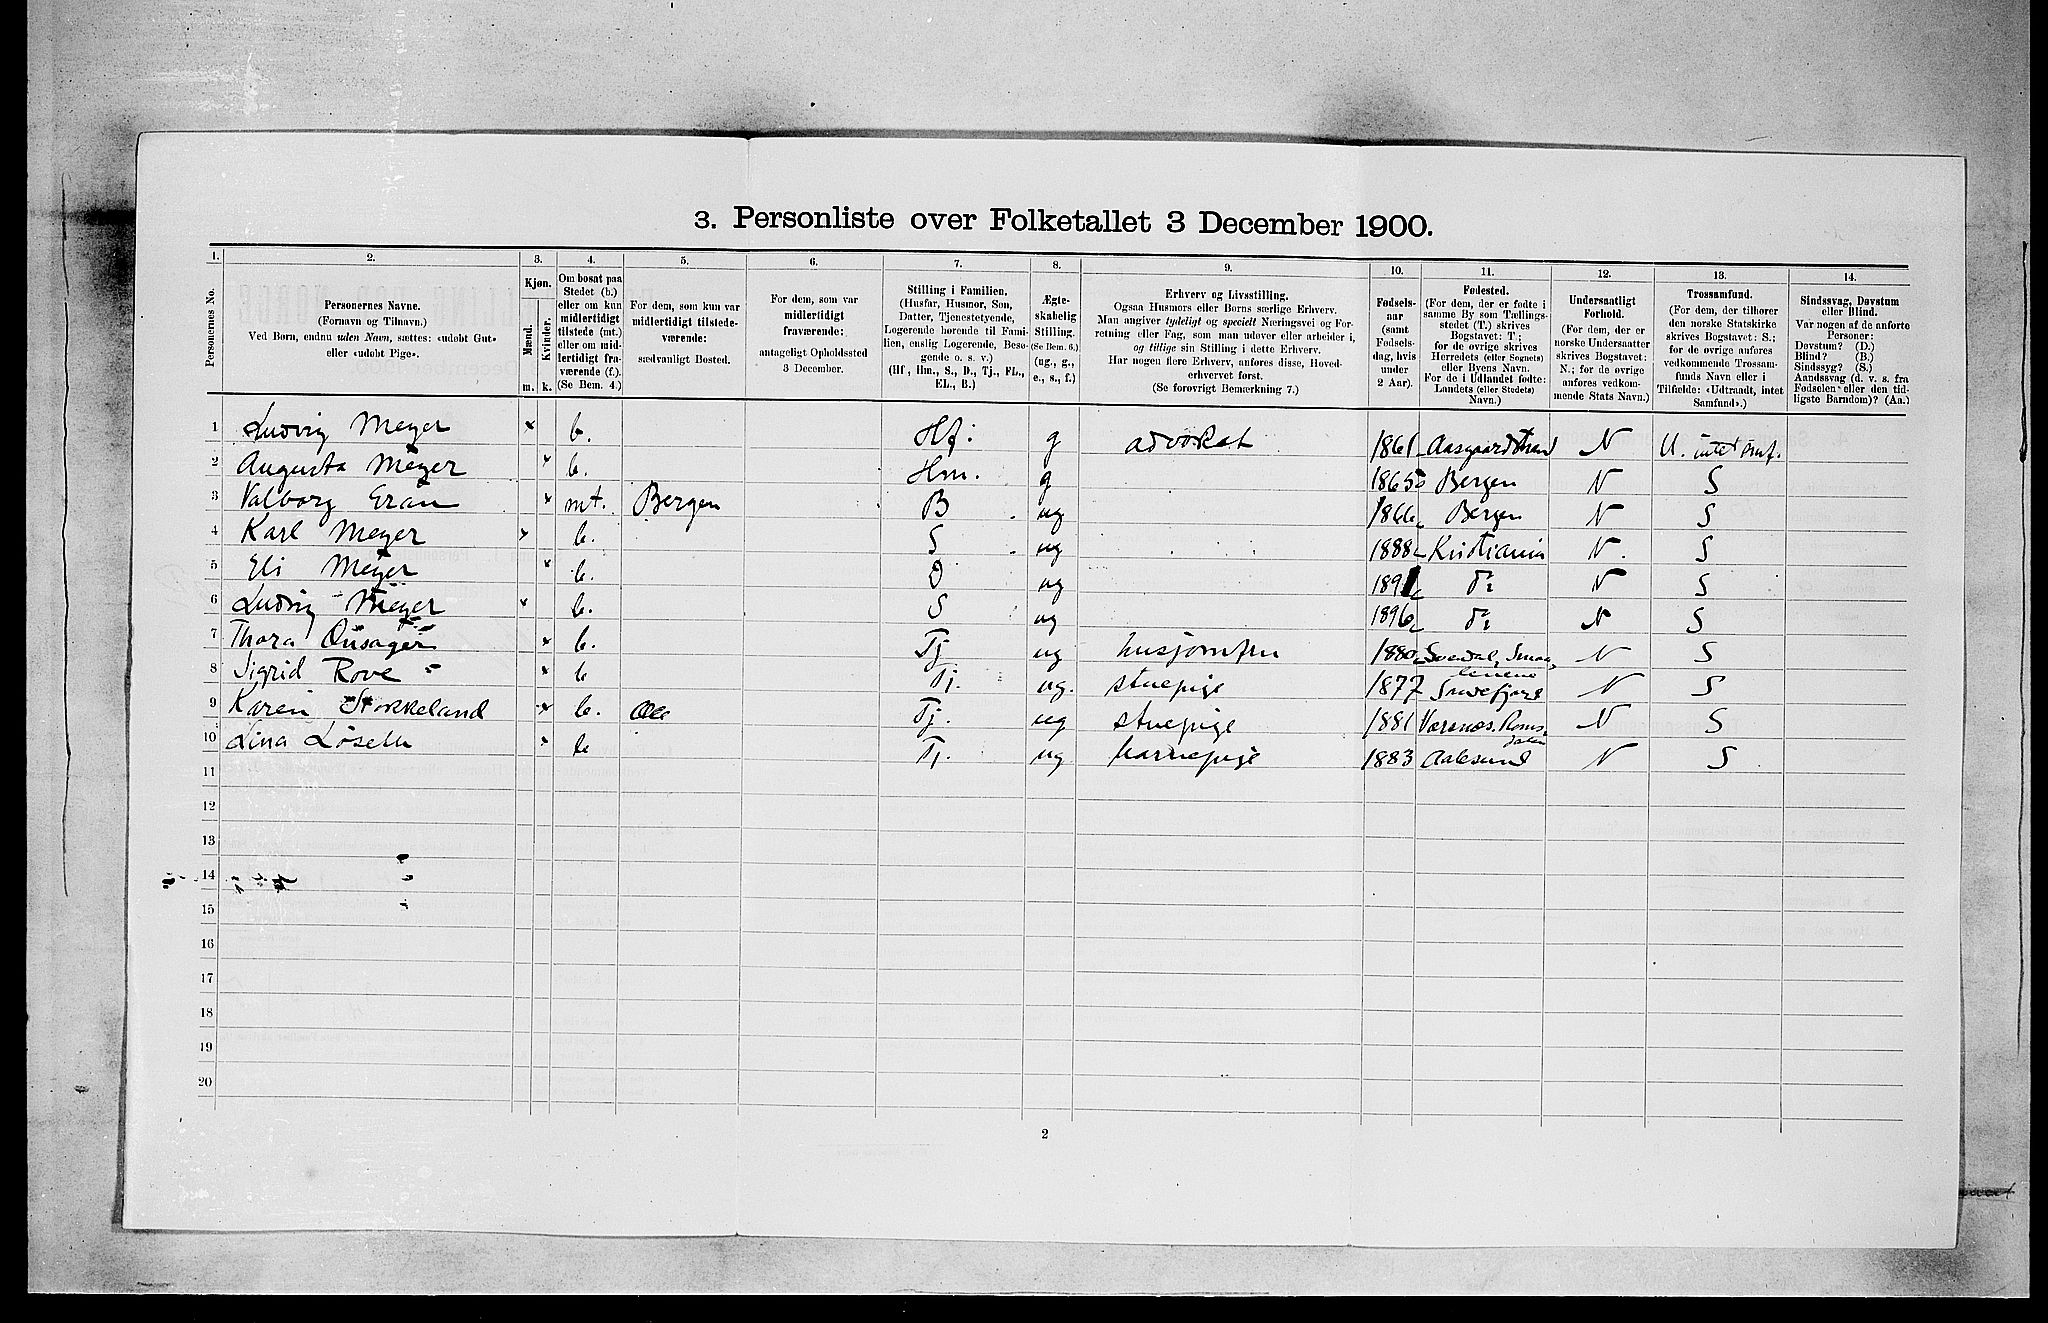 3. Personliste over Folketallet 3 December 1900.
1. 2. 3. 4. 5. 6. 7. 8. 9. 10. 11. 12. 13. 14.
Personernes No.
Personernes Navne.
(Fornavn og Tilnavn.)
Ved Børn, endnu uden Navn, sættes: «udøbt Gut»
eller «udøbt Pige».
Kjøn.
Mænd.
Kvinder.
m. k.
Om bosat paa
Stedet (b.)
eller om kun
midlertidigt
tilstede (mt.)
eller om mid-
lertidigt fra-
værende (f.).
(Se Bem. 4.)
For dem, som kun var
midlertidigt tilstede-
værende:
sædvanligt Bosted.
For dem, som var
midlertidigt
fraværende:
antageligt Opholdssted
3 December.
Stilling i Familien.
(Husfar, Husmor, Søn,
Datter, Tjenestetyende,
Logerende hørende til Fami-
lien, enslig Logerende, Besø-
gende o. s. v.)
(Hf, Hm., S., D., Tj., FL.,
EL., B.)
Ægte-
skabelig
Stilling.
(Se Bem. 6.)
(ug., g.,
e., s., f.)
Erhverv og Livsstilling.
Ogsaa Husmors eller Børns særlige Erhverv.
Man angiver tydeligt og specielt Næringsvei og For-
retning eller Fag, som man udøver eller arbeider i,
og tillige sin Stilling i dette Erhverv.
Har nogen flere Erhverv, anføres disse, Hoved-
erhvervet først.
(Se forøvrigt Bemerkning 7.)
Fødsels-
aar
(samt
Fødsels-
dag, hvis
under
2 Aar).
Fødested.
(For dem, der er fødte i
samme By som Tællings-
stedet (T.) skrives
Bogstavet: T.;
for de øvrige skrives
Herredets (eller Sognets)
eller Byens Navn.
For de i Udlandet fødte:
Landets (eller Stedets)
Navn.)
Undersaatligt
Forhold.
(For dem, der er
norske Undersaatter
skrives Bogstavet:
N.; for de øvrige
anføres vedkom-
mende Stats Navn.)
Trossamfund.
(For dem, der tilhører
den norske Statskirke
skrives Bogstavet: S.;
for de øvrige anføres
vedkommende Trossam-
funds Navn eller i
Tilfælde: «Udtraadt, intet
Samfund».)
Sindssvag, Døvstum
eller Blind.
Var nogen af de anførte
Personer:
Døvstum? (D.)
Blind? (B.)
Sindssyg? (S.)
Aandssvag (d. v. s. fra
Fødselen eller den tid-
ligste Barndom)? (Aa.)
1 Ludvig Meyer x b. Hf: g advokat 1861 Aasgaardstrand N U. intet smf.
2 Augusta Meyer x b. Hm. g 1865 Bergen N S
3 Valborg x mt. Bergen B ug 1866 Bergen N S
4 Karl Meyer x b. S ug 1888 Kristiania N. S
5 Eli Meyer x b. D ug 1891 do N S
6 Ludvig Meyer x b. S ug 1896 do N S
7 Thora Onsager x b. Tj ug husjomfru 1880 N S
8 Sigrid Rove x b Tj. ug. stuepige 1877 N S
9 Karen Stokkeland x b. Tj. ug stuepige 1881 Roms- N S
dalen
10 Lina x b Tj. ug barnepige 1883 Aalesund N S
11
12
13
14
15
16
17
18
19
20
2